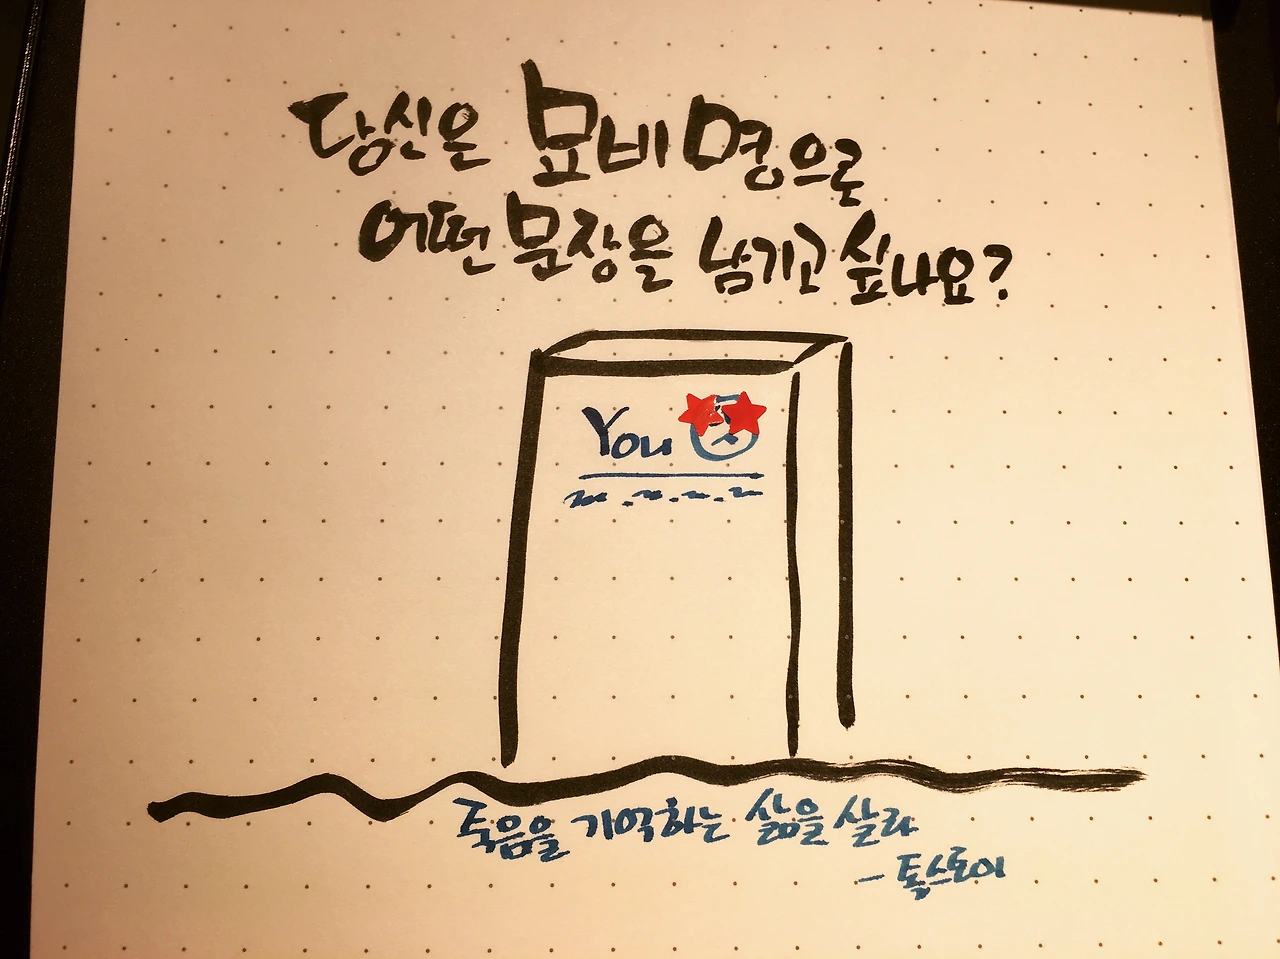 당신은 묘비명으로
어떤 문장을 남기고 싶나요?
You
죽음을 기억하는 삶을 살라
- 톨스토이